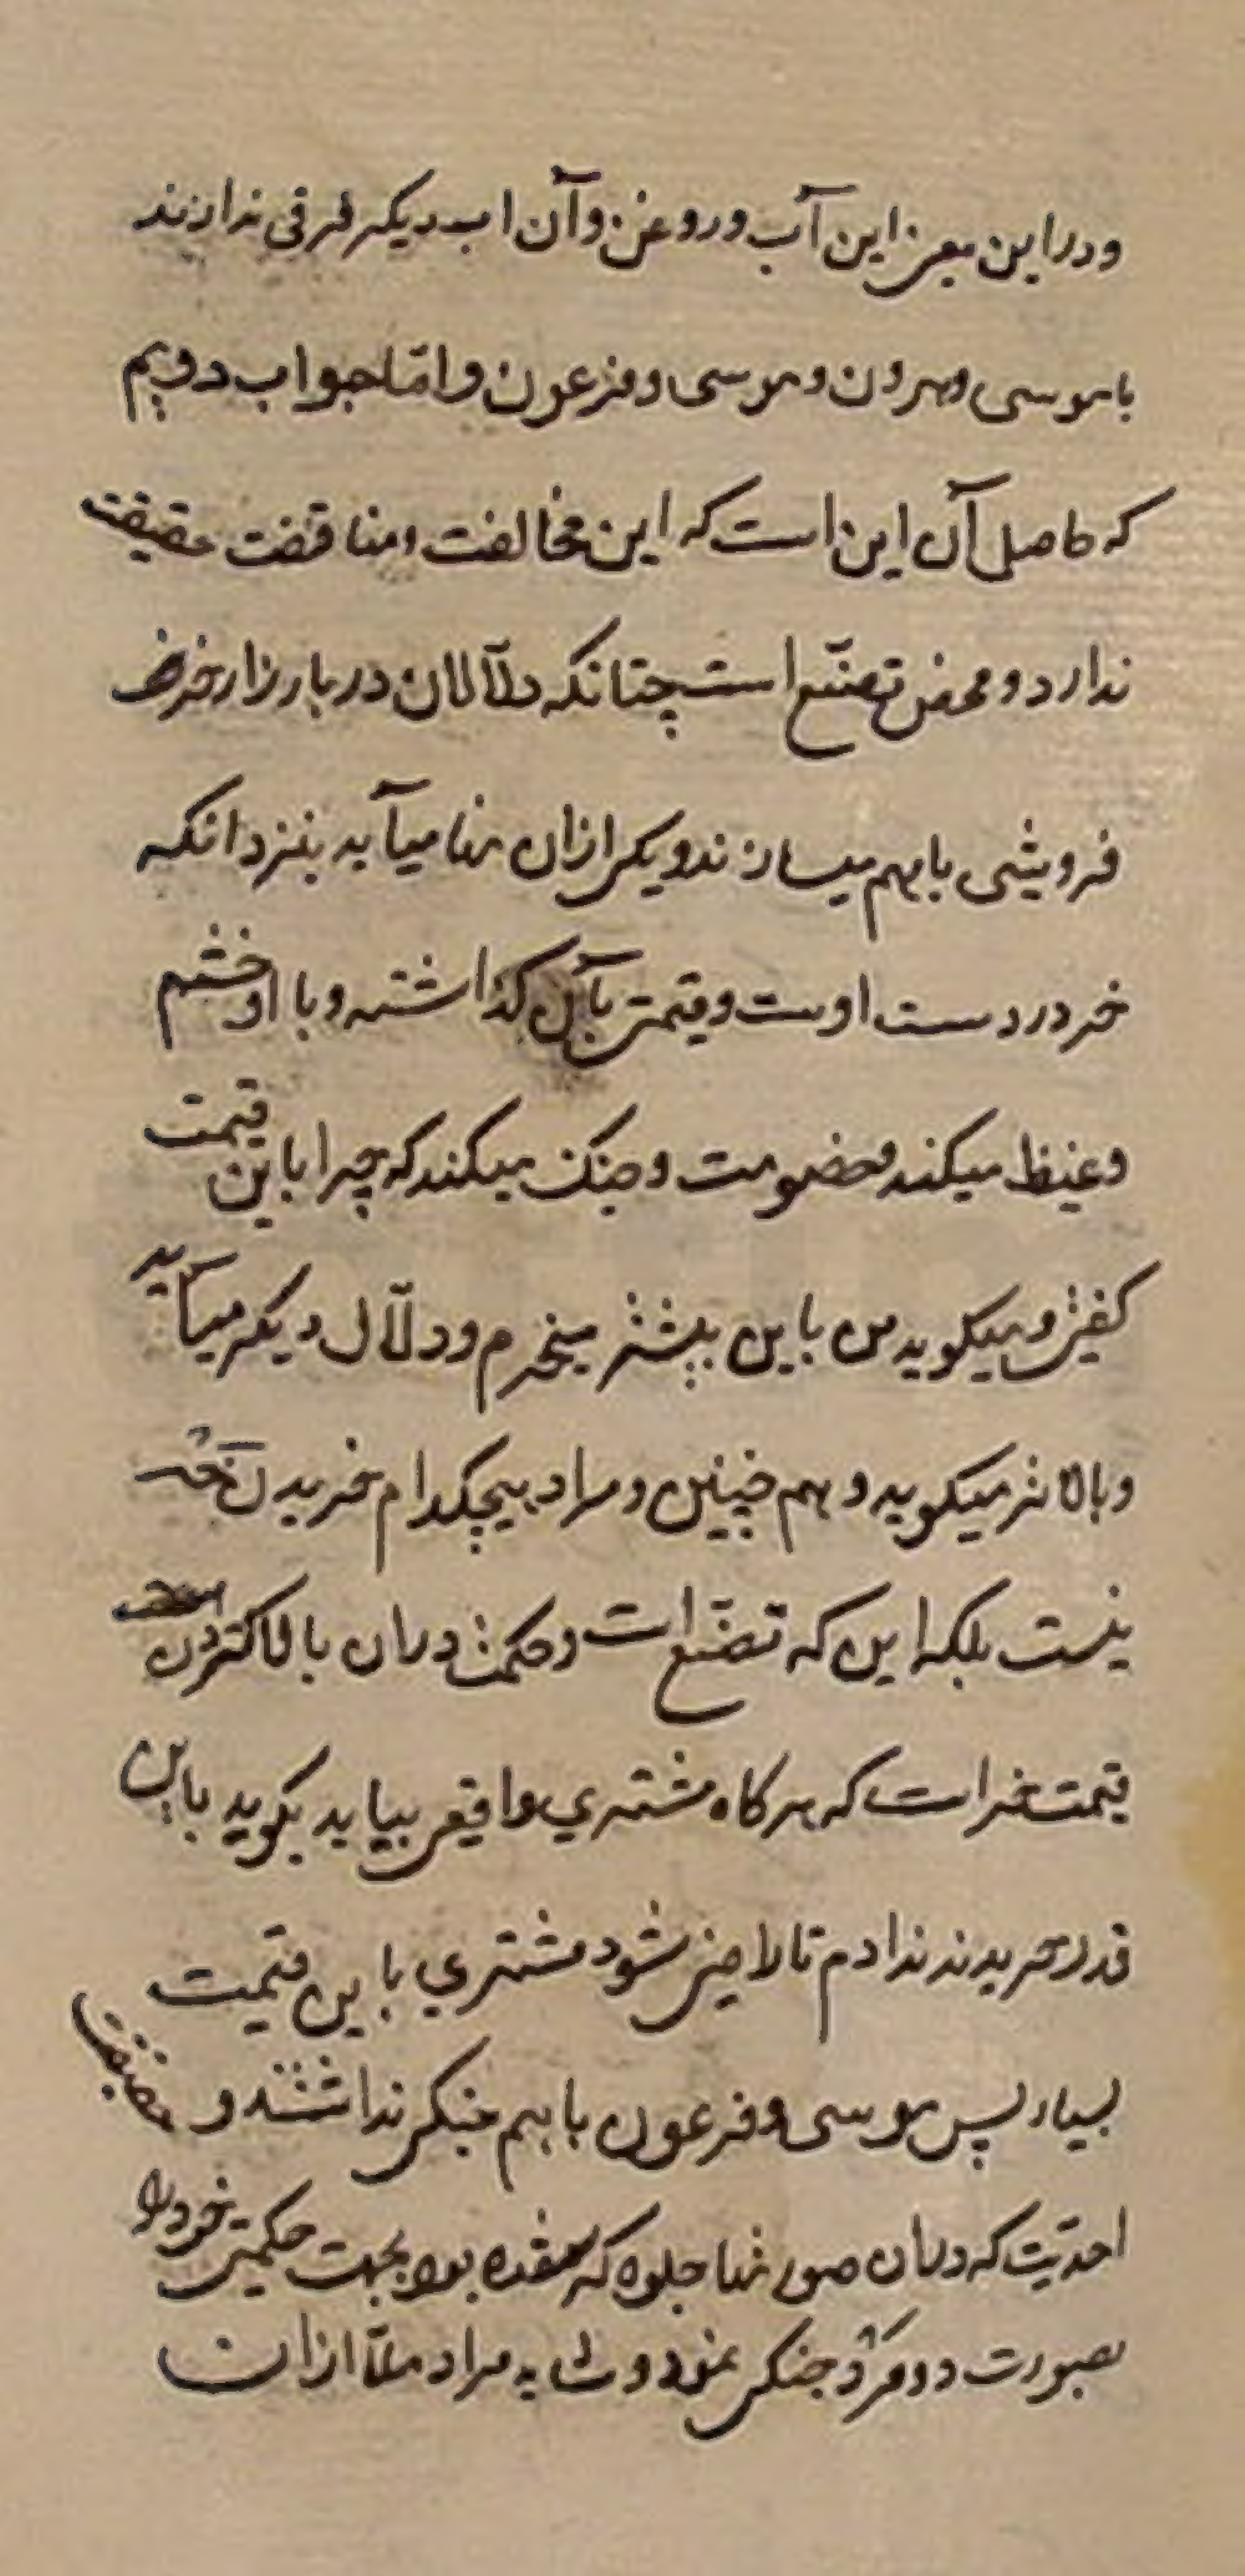 ودراین معنی این آب وروغن وآن اب دیکر فرقی ندارند
باموسی وهرون وموسی وفرعون وامّا جواب دویم
که حاصل آن این است که این مخالفت ومناقضت حقیقت
ندارد ومحض تصنّع است چنانکه دلّالان در بازار خر
فروشی باهم میسازند ویکی ازان انها میآید بنزد انکه
خر در دست اوست وقیمتی بآن کذاشته وبا او خشم
وغیظ میکند وخصومت وجنک میکند که چرا باین قیمت
کفتی ومیکوید من باین بیشتر میخرم ودلّال دیکر میآید
وبالاتر میکوید وهم چنین ومراد هیچکدام خریدن خر
نیست بلکه این که تصنّع است وحکمت دران بالا کردن
قیمت خر است که هرکاه مشتری واقعی بیاید بکوید باین
قدر خریدند ندادم تا راضی شود مشتری باین قیمت
بسیار پس موسی وفرعون باهم جنکی نداشتند و حقیقت
احدیّت که دران صورتها جلوه کر شده بود بجهت حکمتی خود را
بصورت دو مرد جنکی نمود وشاید مراد ملّا ازان